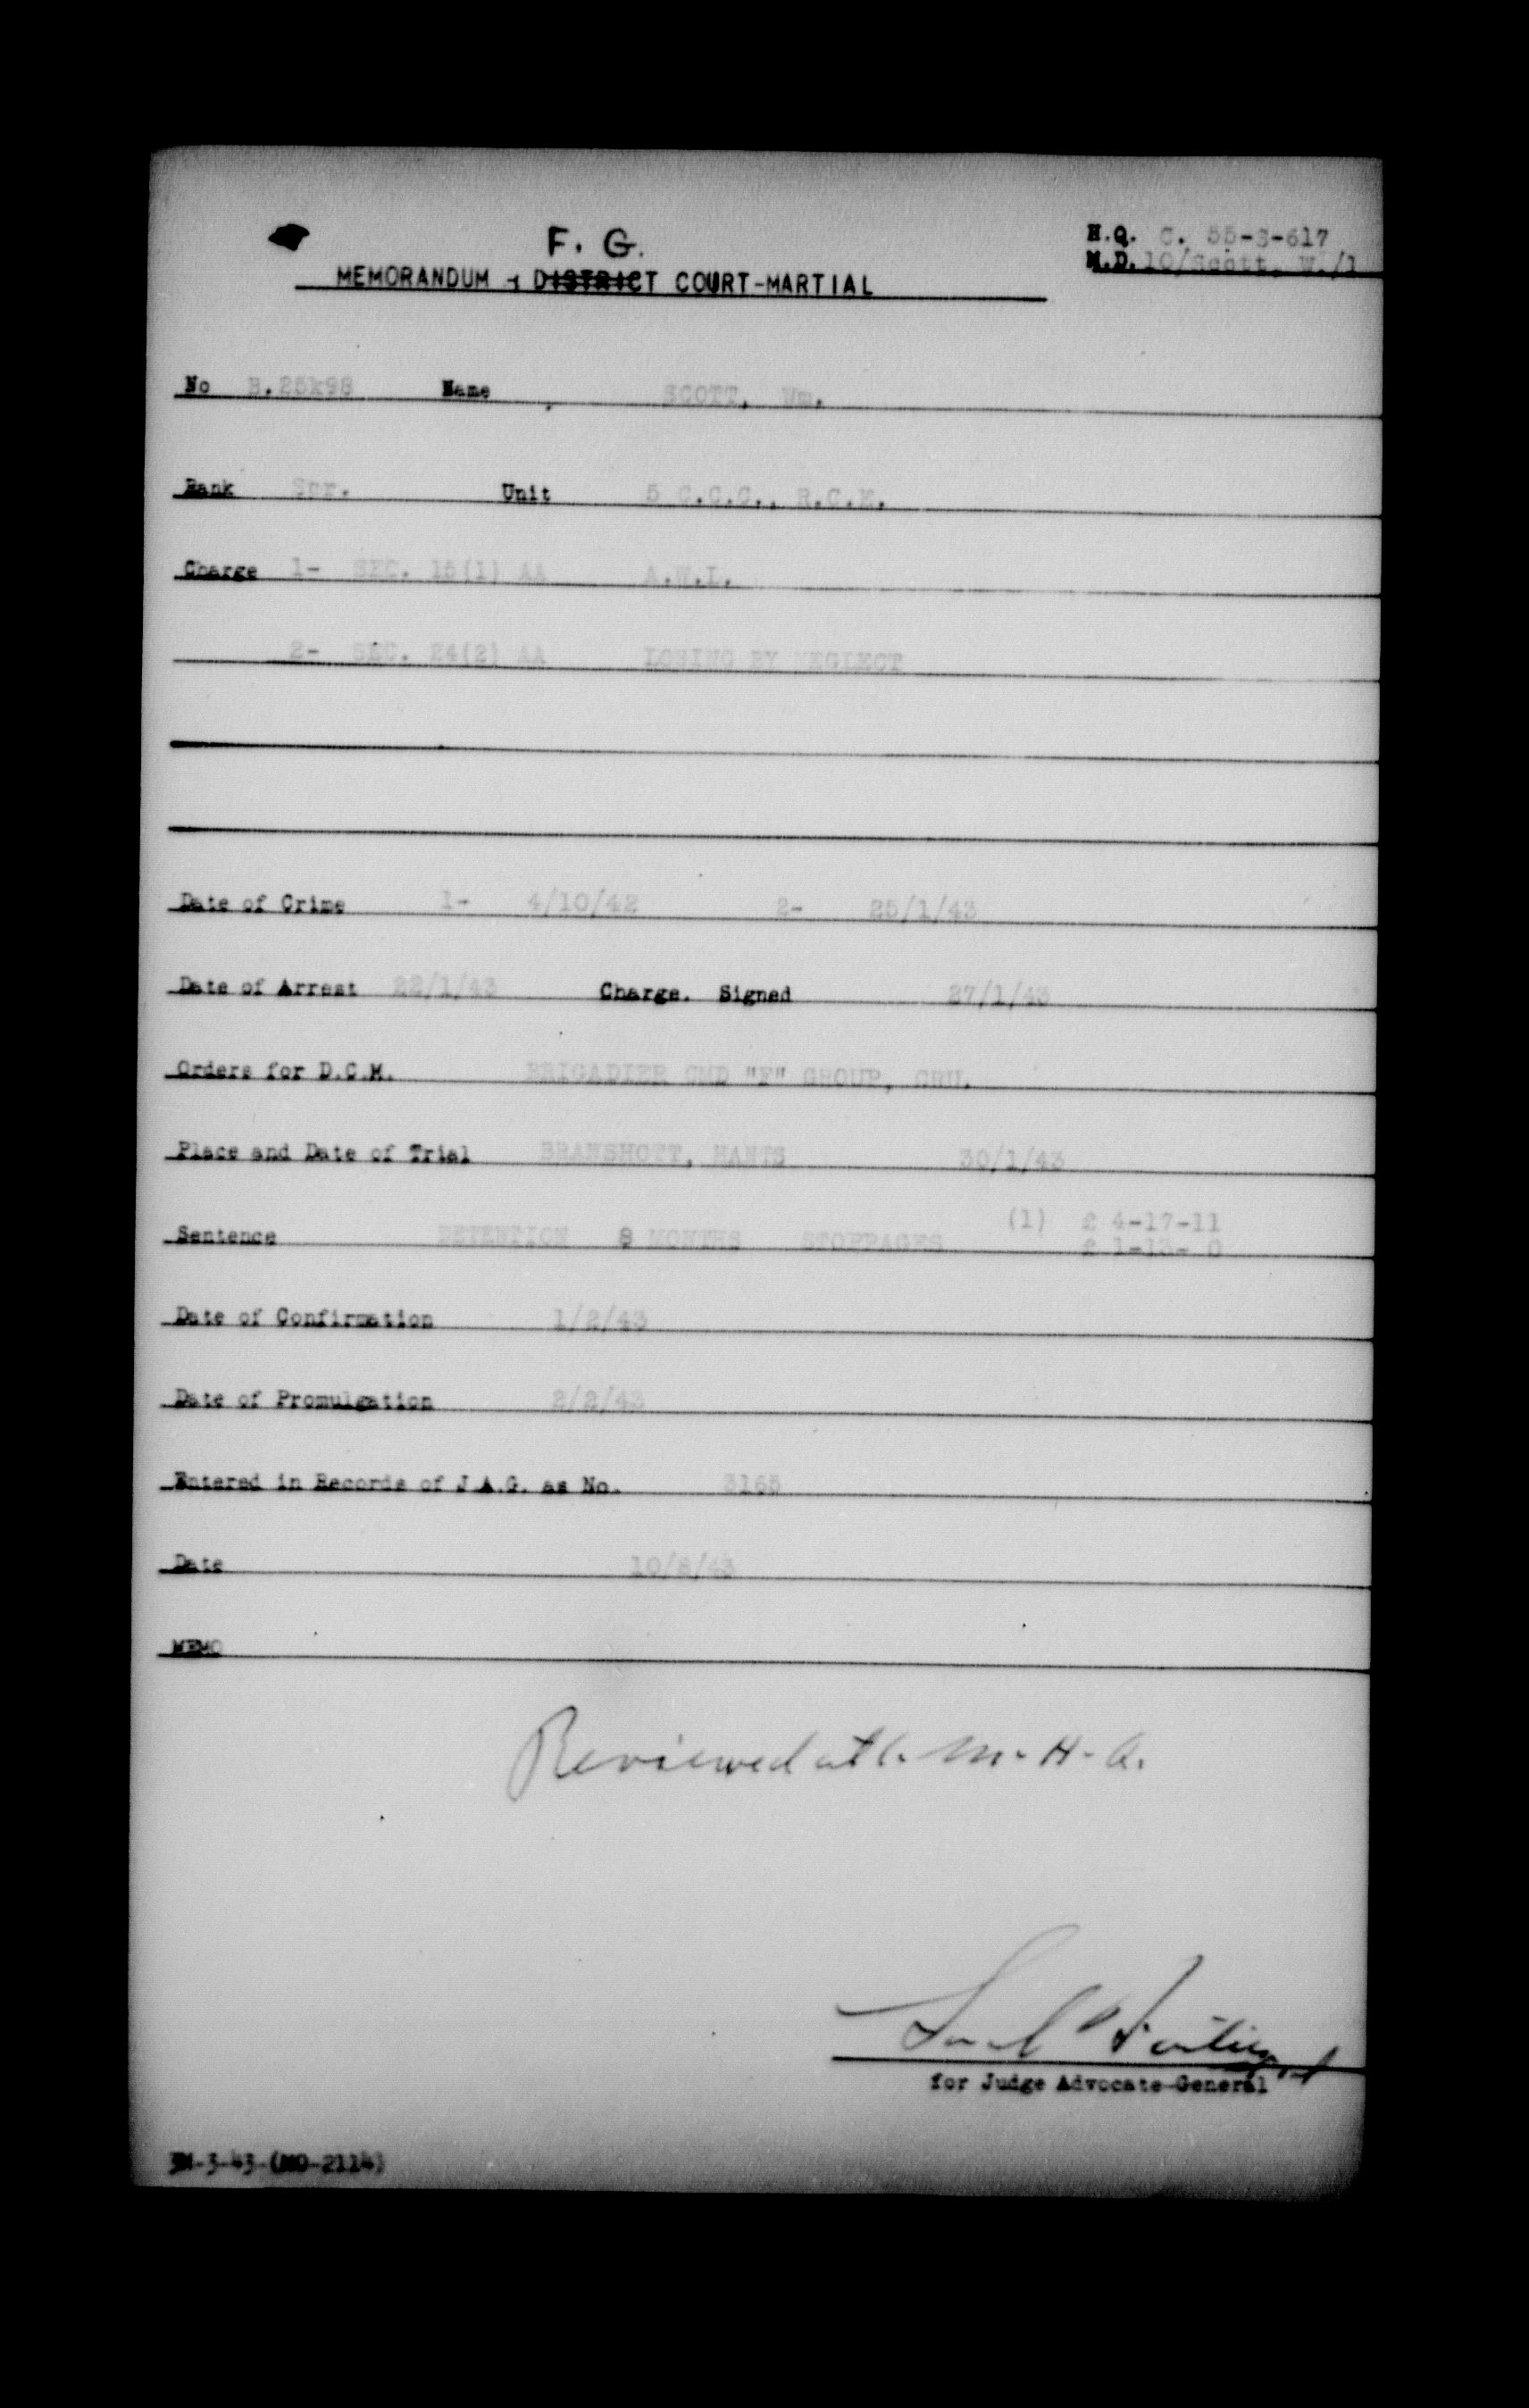 F. G.
MEMORANDUM - DISTRICT COURT-MARTIAL
H.Q. C. 55-S-617
M.D. 10/Scott, W./1
No B.25k98 Name SCOTT, Wm.
Rank Spr. Unit 5 C.C.C., R.C.E.
Charge 1- SEC. 15(1) AA A.W.L.
2- SEC. 24(2) AA LOSING BY NEGLECT
Date of Crime 1- 4/10/42 2- 25/1/43
Date of Arrest 22/1/43 Charge. Signed 27/1/43
Orders for D.C.M. BRIGADIER CMD "F" GROUP, CRU.
Place and Date of Trial BRAMSHOTT, HANTS 30/1/43
Sentence DETENTION 8 MONTHS STOPPAGES (1) £ 4-17-11
£ 1-13- 0
Date of Confirmation 1/2/43
Date of Promulgation 2/2/43
Entered in Records of J.A.G. as No. 3165
Date 10/8/43
MEMO
Reviewed at C. M. H. Q.
for Judge Advocate-General
3M-3-43-(MO-2114)